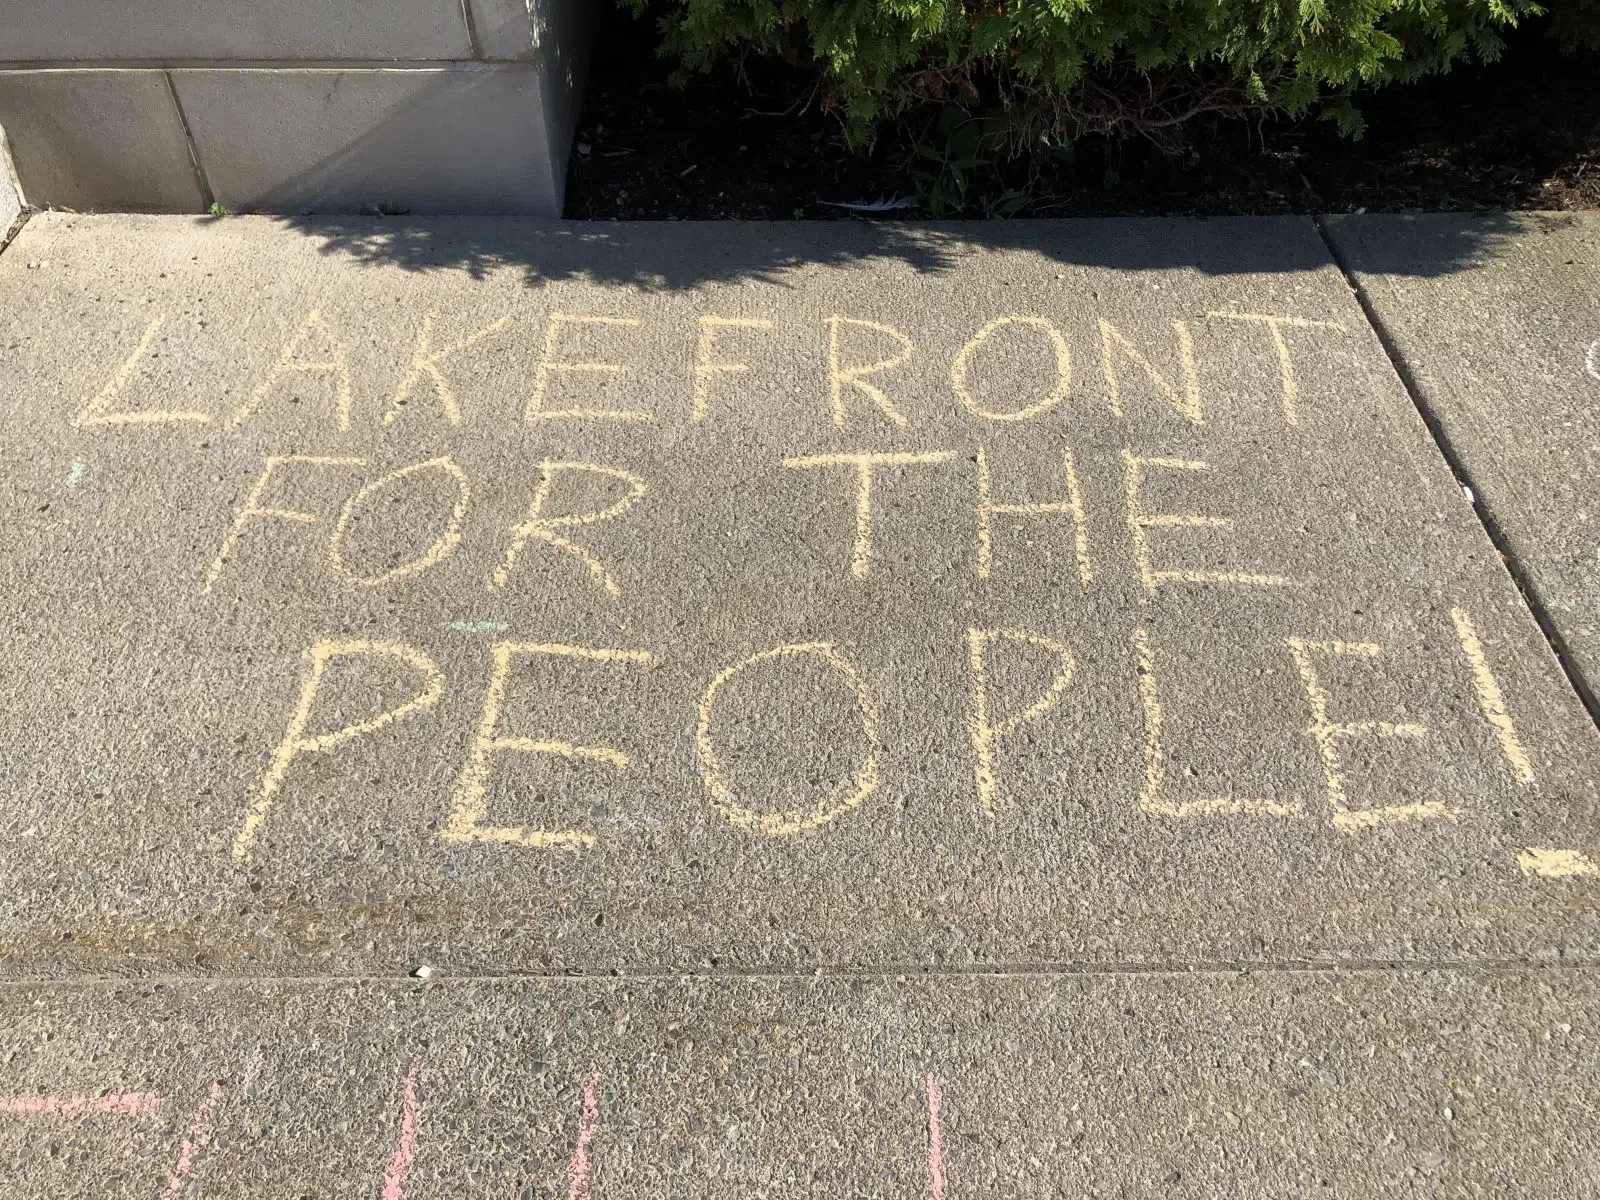 LAKEFRONT
FOR THE
PEOPLE!